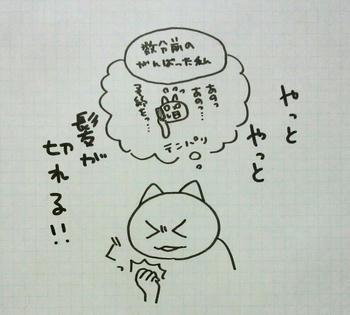 やっと
やっと
髪が
切れる!!
数分前の
がんばった私
あの…
あのっ…
予約を…
テンパリ
ぐっ